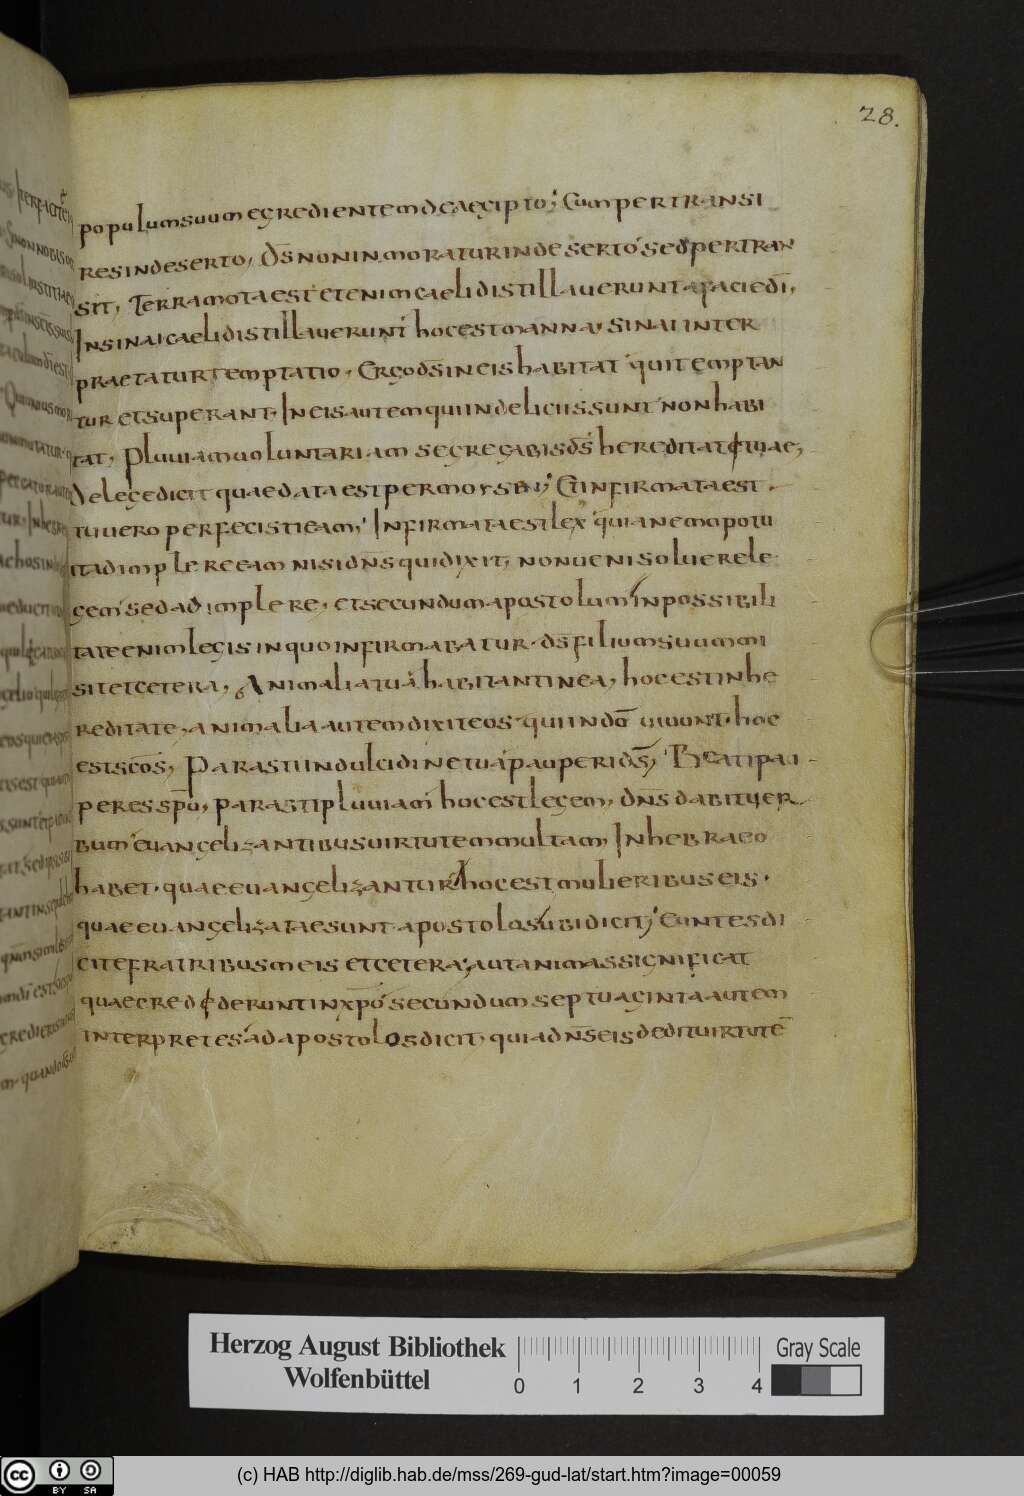 28.
populum suum egredientem de aegipto; Cum pertransi
res in deserto, d̄s non in moratur in deserto sed pertran
sit, Terra mota est etenim caeli distillauerunt a facie dī,
In sinai caeli distillauerunt hoc est manna; sinai inter
praetatur temptatio, Ergo d̄s in eis habitat qui temptan
tur et superant. In eis autem qui in deliciis sunt non habi
tat, Pluuiam uoluntariam segregabis d̄s hereditati tuae,
de lege dicit quae data est per moysen; Et infirmata est.
tu uero perfecisti eam, Infirmata est lex quia nemo potu
it adimplere eam nisi dn̄s qui dixit, non ueni soluere le
gem sed adimplere, et secundum apostolum inpossibili
tate enim legis in quo infirmabatur. d̄s filium suum mi
sit et cetera, Animalia tua habitant in ea, hoc est in he
reditate, animalia autem dixit eos qui in dō uiuunt. hoc
est sc̄os, Parasti in dulcidine tua pauperi d̄s, Beati pau
peres sp̄u, parasti pluuiam hoc est legem, dn̄s dabit uer
bum euangelizantibus uirtutem multam, In hebraeo
habet. quae euangelizantur hoc est mulieribus eis.
quae euangelizatae sunt apostolos ubi dicit; Euntes di
cite fratribus meis et cetera; aut animas significat
quae crediderunt in xp̄o secundum septuaginta autem
interpretes ad apostolos dicit. quia dn̄s eis dedit uirtutē
Herzog August Bibliothek
Wolfenbüttel
0 1 2 3 4
Gray Scale
cc BY SA
(c) HAB http://diglib.hab.de/mss/269-gud-lat/start.htm?image=00059